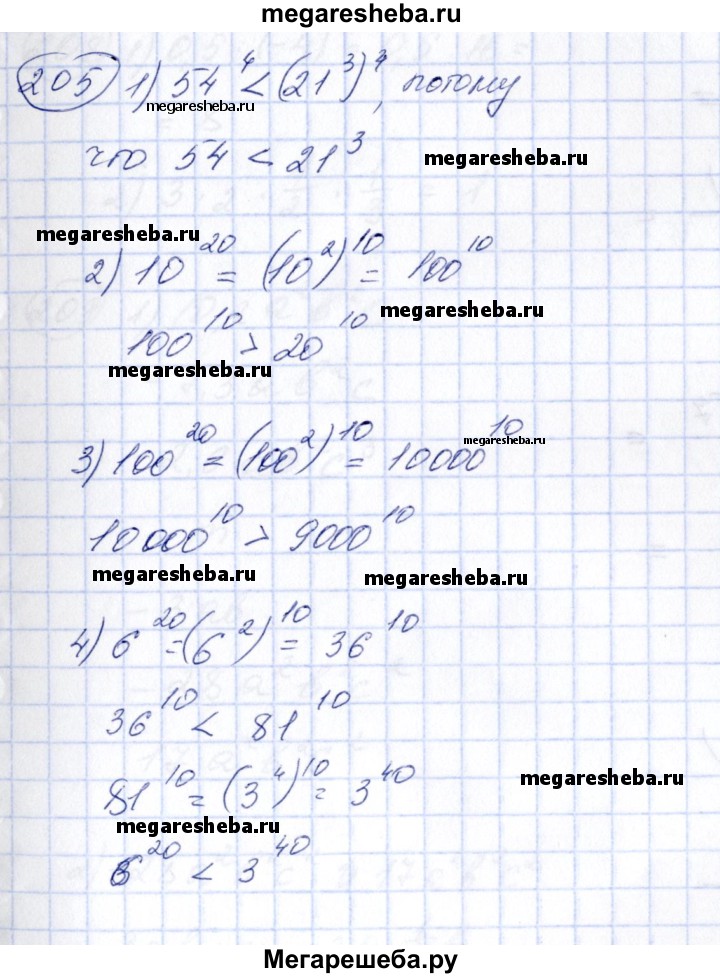 megaresheba.ru
205 1) 54⁴ < (21³)⁴, потому
megaresheba.ru
что 54 < 21³
megaresheba.ru
megaresheba.ru
2) 10²⁰ = (10²)¹⁰ = 100¹⁰
megaresheba.ru
100¹⁰ > 20¹⁰
megaresheba.ru
megaresheba.ru
3) 100²⁰ = (100²)¹⁰ = 10000¹⁰
10000¹⁰ > 9000¹⁰
megaresheba.ru megaresheba.ru
4) 6²⁰ = (6²)¹⁰ = 36¹⁰
36¹⁰ < 81¹⁰
megaresheba.ru
81¹⁰ = (3⁴)¹⁰ = 3⁴⁰
megaresheba.ru
6²⁰ < 3⁴⁰
Мегарешеба.ру